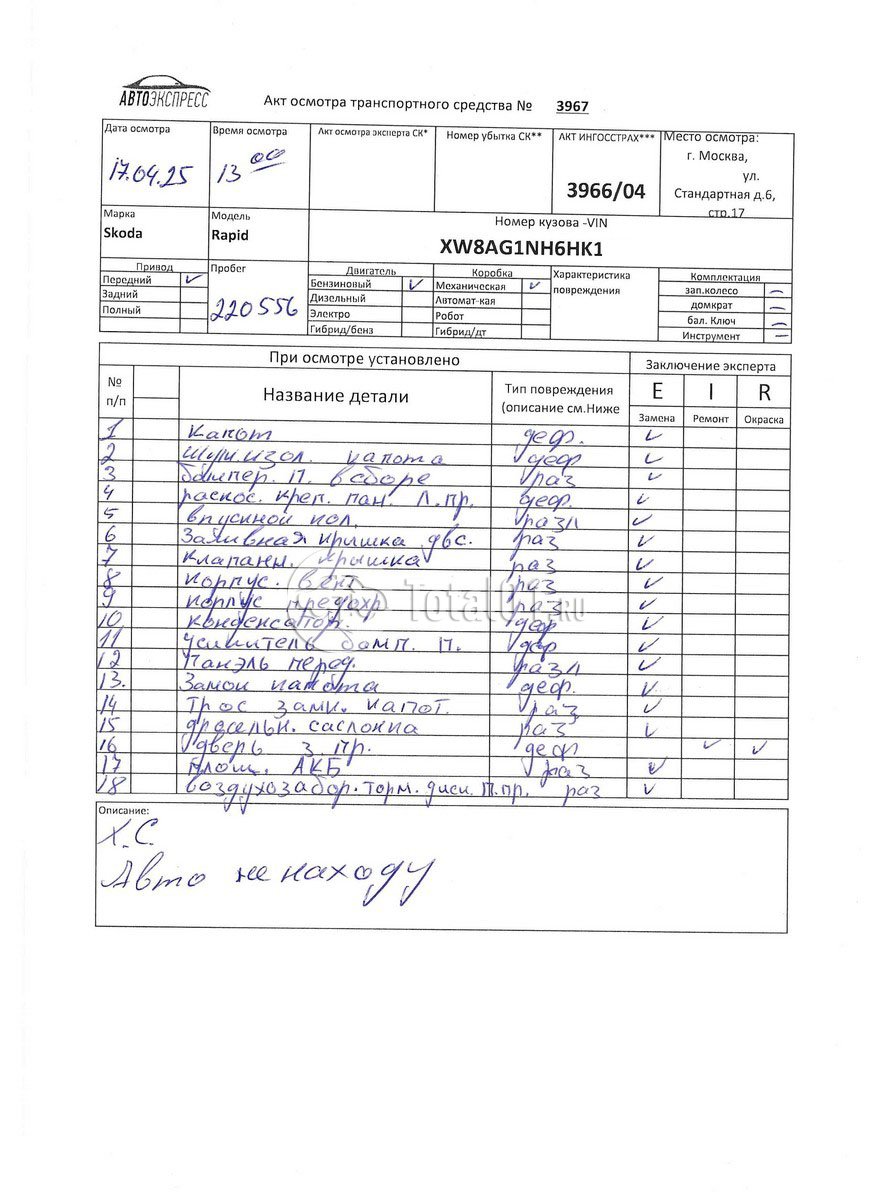 АВТОЭКСПРЕСС
Акт осмотра транспортного средства № 3967
Дата осмотра Время осмотра Акт осмотра эксперта СК* Номер убытка СК** АКТ ИНГОССТРАХ*** Место осмотра:
17.04.25 13 00 3966/04 г. Москва,
ул.
Стандартная д.6,
стр.17
Марка Модель Номер кузова -VIN
Skoda Rapid XW8AG1NH6HK1
Привод Пробег Двигатель Коробка Характеристика повреждения Комплектация
Передний ✓ 220556 Бензиновый ✓ Механическая ✓ зап.колесо –
Задний Дизельный Автомат-кая домкрат –
Полный Электро Робот бал. Ключ –
Гибрид/бенз Гибрид/дт Инструмент –
При осмотре установлено Заключение эксперта
№ п/п Название детали Тип повреждения (описание см.Ниже E I R
Замена Ремонт Окраска
1 Капот деф. ✓
2 Шум.изол. капота деф ✓
3 бампер. П. в сборе раз ✓
4 раскос. креп. пан. Л.пр. деф. ✓
5 впускной кол. разл ✓
6 Заливная крышка двс. раз ✓
7 Клапанн. крышка раз ✓
8 корпус. вент. раз ✓
9 корпус предохр раз ✓
10 конденсатор. деф ✓
11 Усилитель бамп. П. деф ✓
12 Панэль перед. разл ✓
13. Замок капота деф. ✓
14 Трос замк. капот. раз ✓
15 дросельн. саслонка раз ✓
16 дверь з. пр. деф ✓ ✓
17 площ. АКБ раз ✓
18 воздухозабор. торм. диск. П.пр. раз ✓
Total01.RU
Описание:
Х.С.
Авто не находу